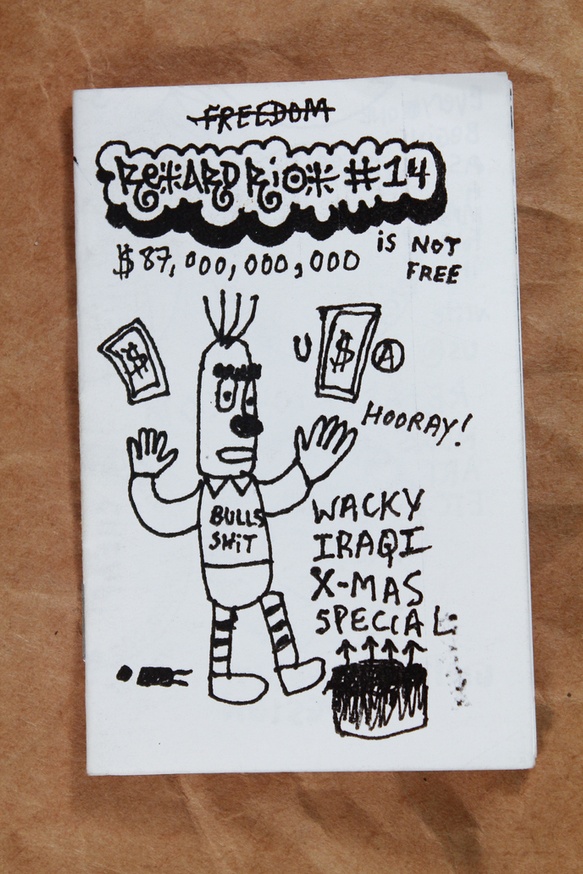 FREEDOM
RE*ARD RiO* #14
$87,000,000,000
is NOT
FREE
$
U $ A
HOORAY!
BULLS
SHiT
WACKY
IRAQI
X-MAS
SPECIAL